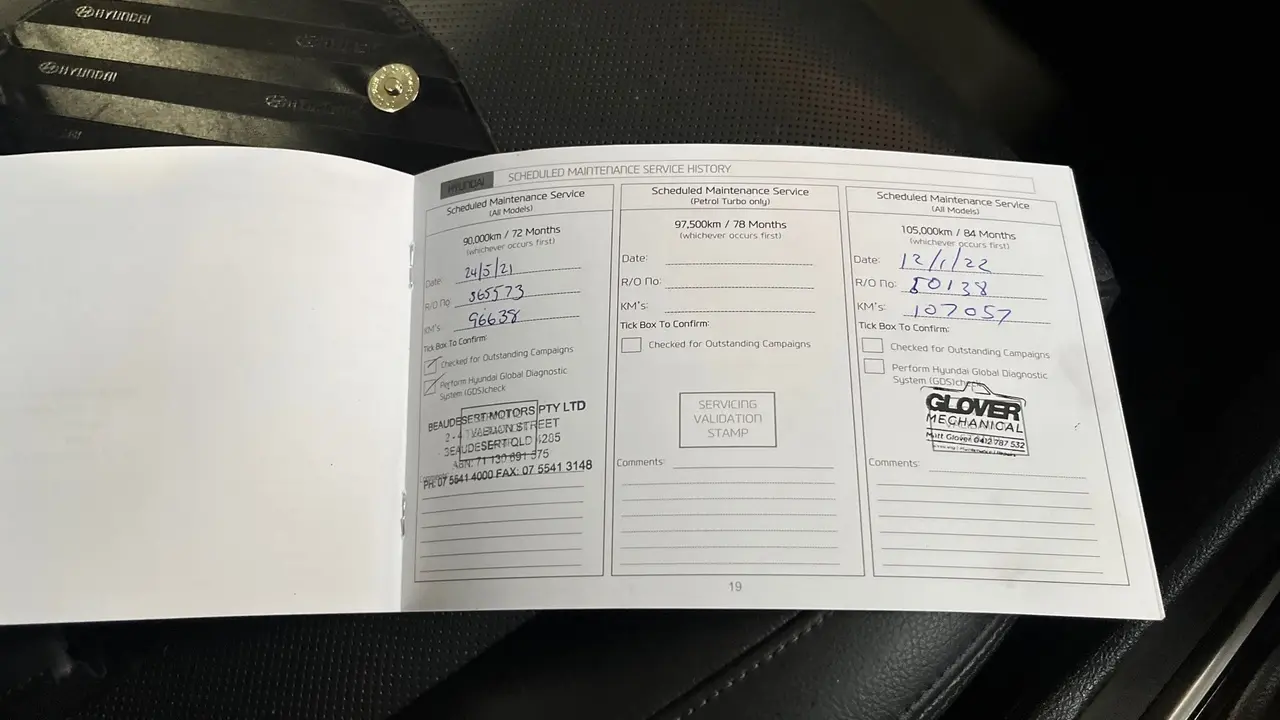 HYUNDAI
HYUNDAI
HYUNDAI
SCHEDULED MAINTENANCE SERVICE HISTORY
Scheduled Maintenance Service
(All Models)
90,000km / 72 Months
(whichever occurs first)
Date: 24/5/21
R/O No: 365573
KM's: 96638
Tick Box To Confirm:
Checked for Outstanding Campaigns
Perform Hyundai Global Diagnostic
System (GDS)check
BEAUDESERT MOTORS PTY LTD
2 - 4 STREET
BEAUDESERT QLD 4285
ABN: 71 130 691 575
PH: 07 5541 4000 FAX: 07 5541 3148
Scheduled Maintenance Service
(Petrol Turbo only)
97,500km / 78 Months
(whichever occurs first)
Date:
R/O No:
KM's:
Tick Box To Confirm:
Checked for Outstanding Campaigns
SERVICING
VALIDATION
STAMP
Comments:
Scheduled Maintenance Service
(All Models)
105,000km / 84 Months
(whichever occurs first)
Date: 12/1/22
R/O No: 50138
KM's: 107057
Tick Box To Confirm:
Checked for Outstanding Campaigns
Perform Hyundai Global Diagnostic
System (GDS)check
GLOVER
MECHANICAL
Matt Glover 0412 787 532
Comments:
19